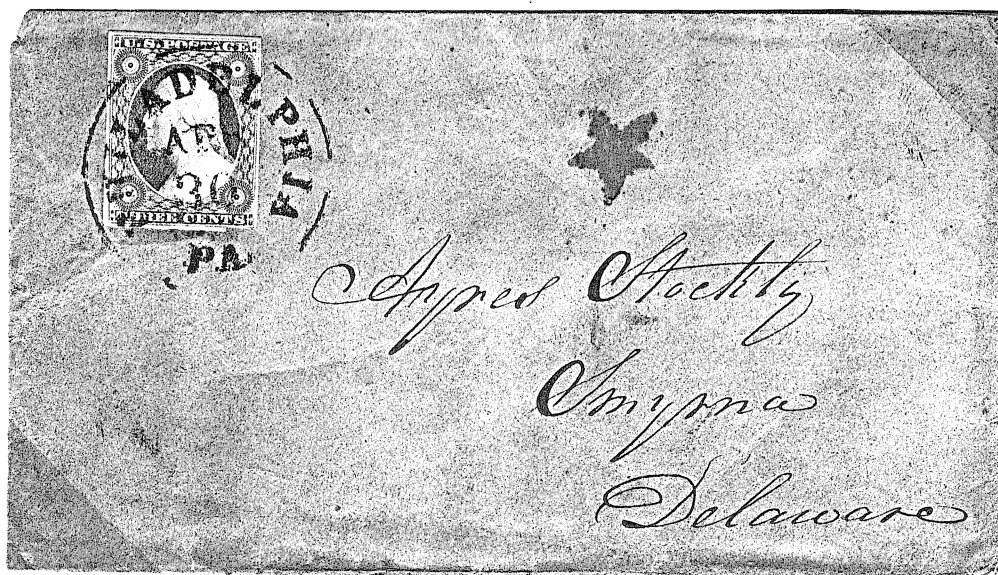 U.S. POSTAGE
THREE CENTS
PHILADELPHIA
30
PA
Ayres Stockly
Smyrna
Delaware